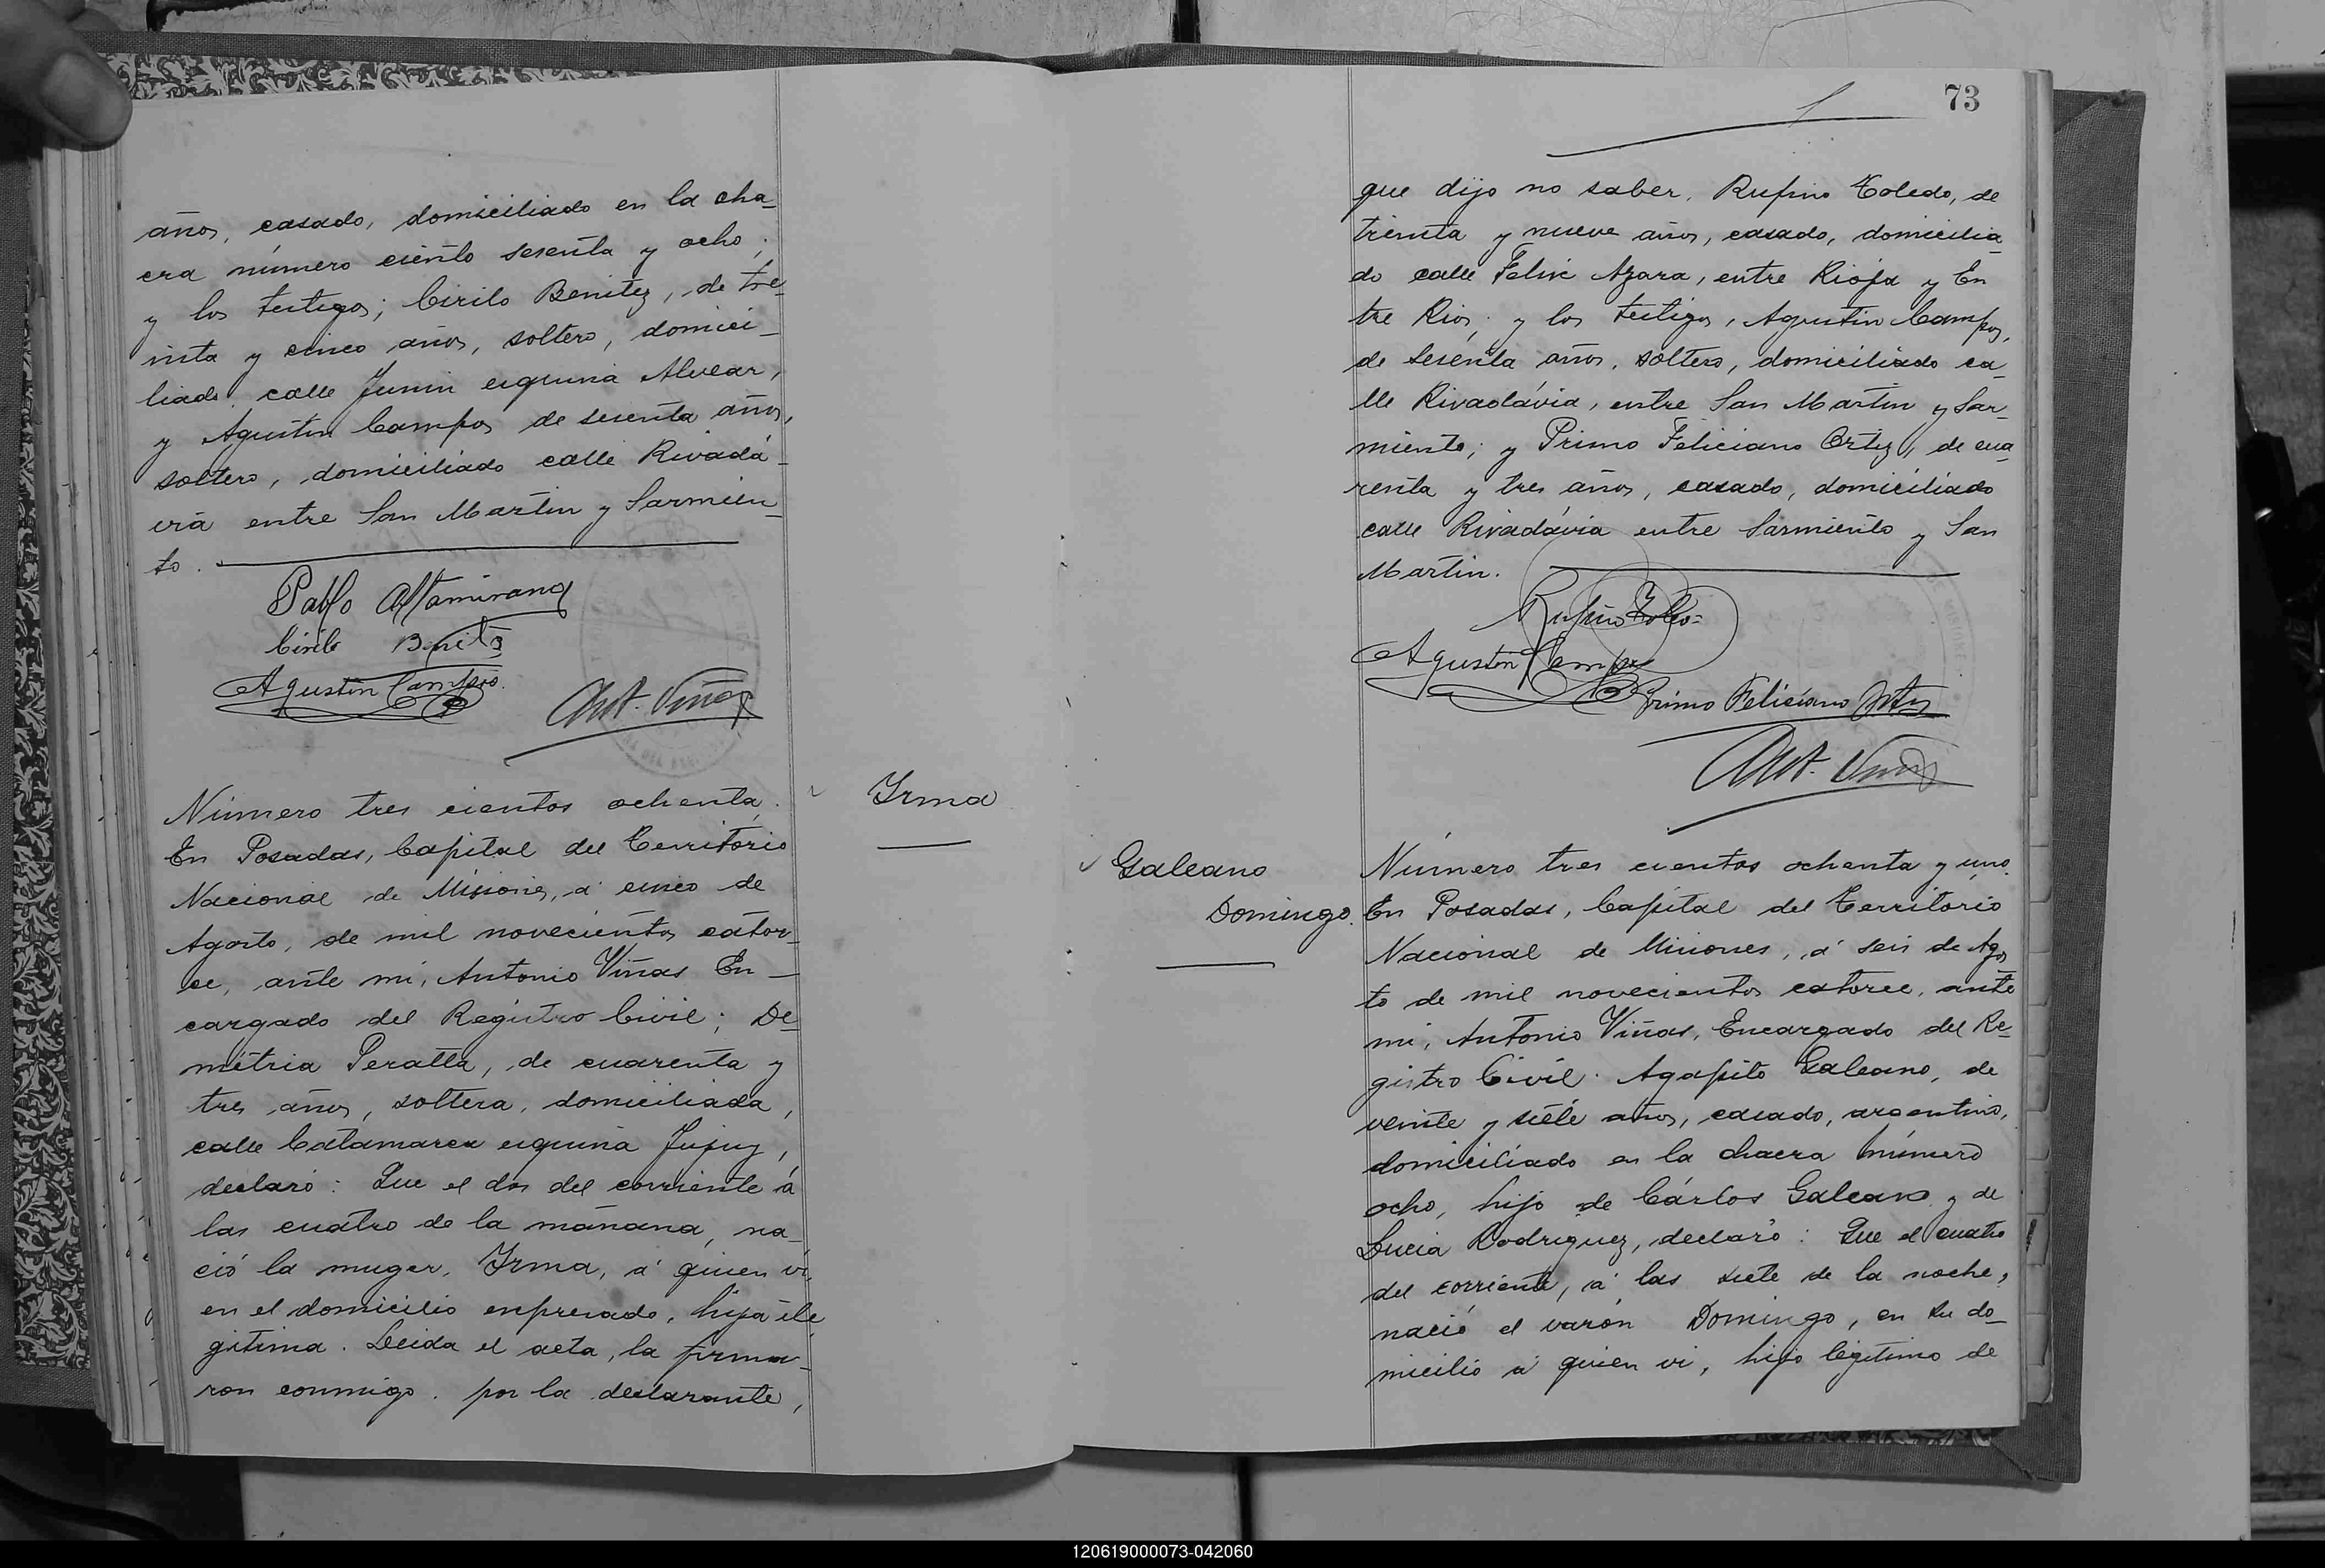 años, casado, domiciliado en la cha_
cra número ciento sesenta y ocho;
y los testigos; Cirilo Benitez, de tre_
inta y cinco años, soltero, domici_
liado calle Junin esquina Alvear,
y Agustin Campos de sesenta años,
soltero, domiciliado calle Rivadá_
via entre San Martin y Sarmien_
to.
Pablo Altamirano
Cirilo Benitez
Agustin Campos
Ant. Viñas
Número tres cientos ochenta.
En Posadas, Capital del Territorio
Nacional de Misiones, á cinco de
Agosto, de mil novecientos cator_
ce, ante mi, Antonio Viñas En_
cargado del Registro Civil; De_
métria Peralta, de cuarenta y
tres años, soltera, domiciliada,
calle Catamarca esquina Jujuy,
declaró: Que el dos del corriente á
las cuatro de la mañana, na_
ció la muger, Irma, á quien vi,
en el domicilio enpresado, hija ile_
gitima. Leida el acta, la firma_
ron conmigo. por la declarante,
Irma
73
que dijo no saber. Rufino Toledo, de
treinta y nueve años, casado, domicilia
do calle Felix Azara, entre Rioja y En
tre Rios; y los testigos, Agustin Campos,
de sesenta años, soltero, domiciliado ca_
lle Rivadávia, entre San Martin y Sar_
miento; y Primo Feliciano Ortiz, de cua_
renta y tres años, casado, domiciliado
calle Rivadávia entre Sarmiento y San
Martin.
Rufino Toledo
Agustin Campos
Primo Feliciano Ortiz
Ant. Viñas
Galeano
Domingo.
Número tres cientos ochenta y uno.
En Posadas, Capital del Territorio
Nacional de Misiones, á seis de Agos
to de mil novecientos catorce, ante
mi, Antonio Viñas, Encargado del Re_
gistro Civil. Agapito Galeano, de
veinte y siete años, casado, argentino,
domiciliado en la chacra número
ocho, hijo de Cárlos Galeano y de
Lucia Rodriguez, declaró: Que el cuatro
del corriente, á las siete de la noche,
nació el varón Domingo, en su do_
micilio á quien vi, hijo legitimo de
120619000073-042060